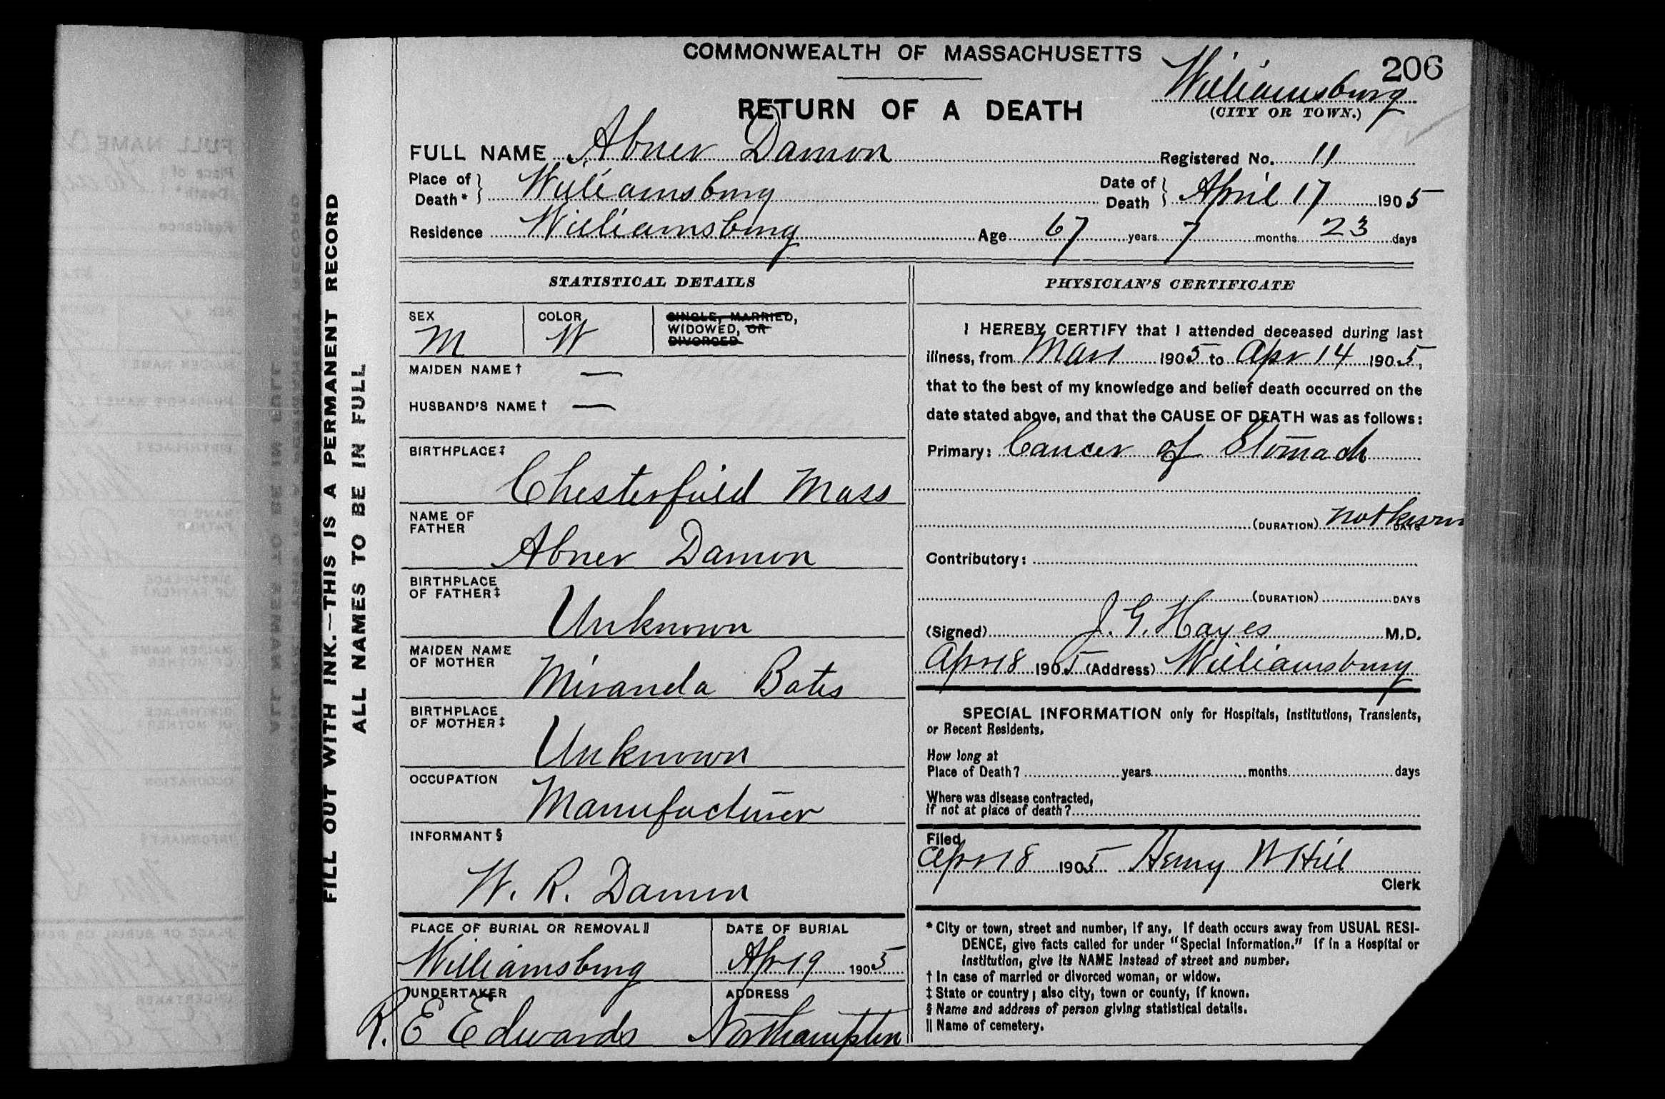 COMMONWEALTH OF MASSACHUSETTS
206
Williamsburg
RETURN OF A DEATH
(CITY OR TOWN.)
FULL NAME Abner Damon Registered No. 11
Place of Death* Williamsburg Date of Death April 17 1905
Residence Williamsburg Age 67 years 7 months 23 days
FILL OUT WITH INK.—THIS IS A PERMANENT RECORD
ALL NAMES TO BE IN FULL
STATISTICAL DETAILS
SEX
M
COLOR
W
SINGLE, MARRIED,
WIDOWED, OR
DIVORCED
MAIDEN NAME† —
HUSBAND'S NAME† —
BIRTHPLACE‡
Chesterfield Mass
NAME OF
FATHER
Abner Damon
BIRTHPLACE
OF FATHER‡
Unknown
MAIDEN NAME
OF MOTHER
Miranda Bates
BIRTHPLACE
OF MOTHER‡
Unknown
OCCUPATION
Manufacturer
INFORMANT§
W. R. Damon
PLACE OF BURIAL OR REMOVAL||
Williamsburg
DATE OF BURIAL
Apr 19 1905
UNDERTAKER
R. E Edwards
ADDRESS
Northampton
PHYSICIAN'S CERTIFICATE
I HEREBY CERTIFY that I attended deceased during last
illness, from Mar 1 1905 to Apr 14 1905,
that to the best of my knowledge and belief death occurred on the
date stated above, and that the CAUSE OF DEATH was as follows:
Primary: Cancer of Stomach
(DURATION) not known DAYS
Contributory:
(DURATION) DAYS
(Signed) J. G. Hayes M.D.
Apr 18 1905 (Address) Williamsburg
SPECIAL INFORMATION only for Hospitals, Institutions, Transients,
or Recent Residents.
How long at
Place of Death? years months days
Where was disease contracted,
if not at place of death?
Filed
Apr 18 1905 Henry W Hill
Clerk
* City or town, street and number, if any. If death occurs away from USUAL RESI-
DENCE, give facts called for under "Special Information." If in a Hospital or
Institution, give its NAME instead of street and number.
† In case of married or divorced woman, or widow.
‡ State or country; also city, town or county, if known.
§ Name and address of person giving statistical details.
|| Name of cemetery.